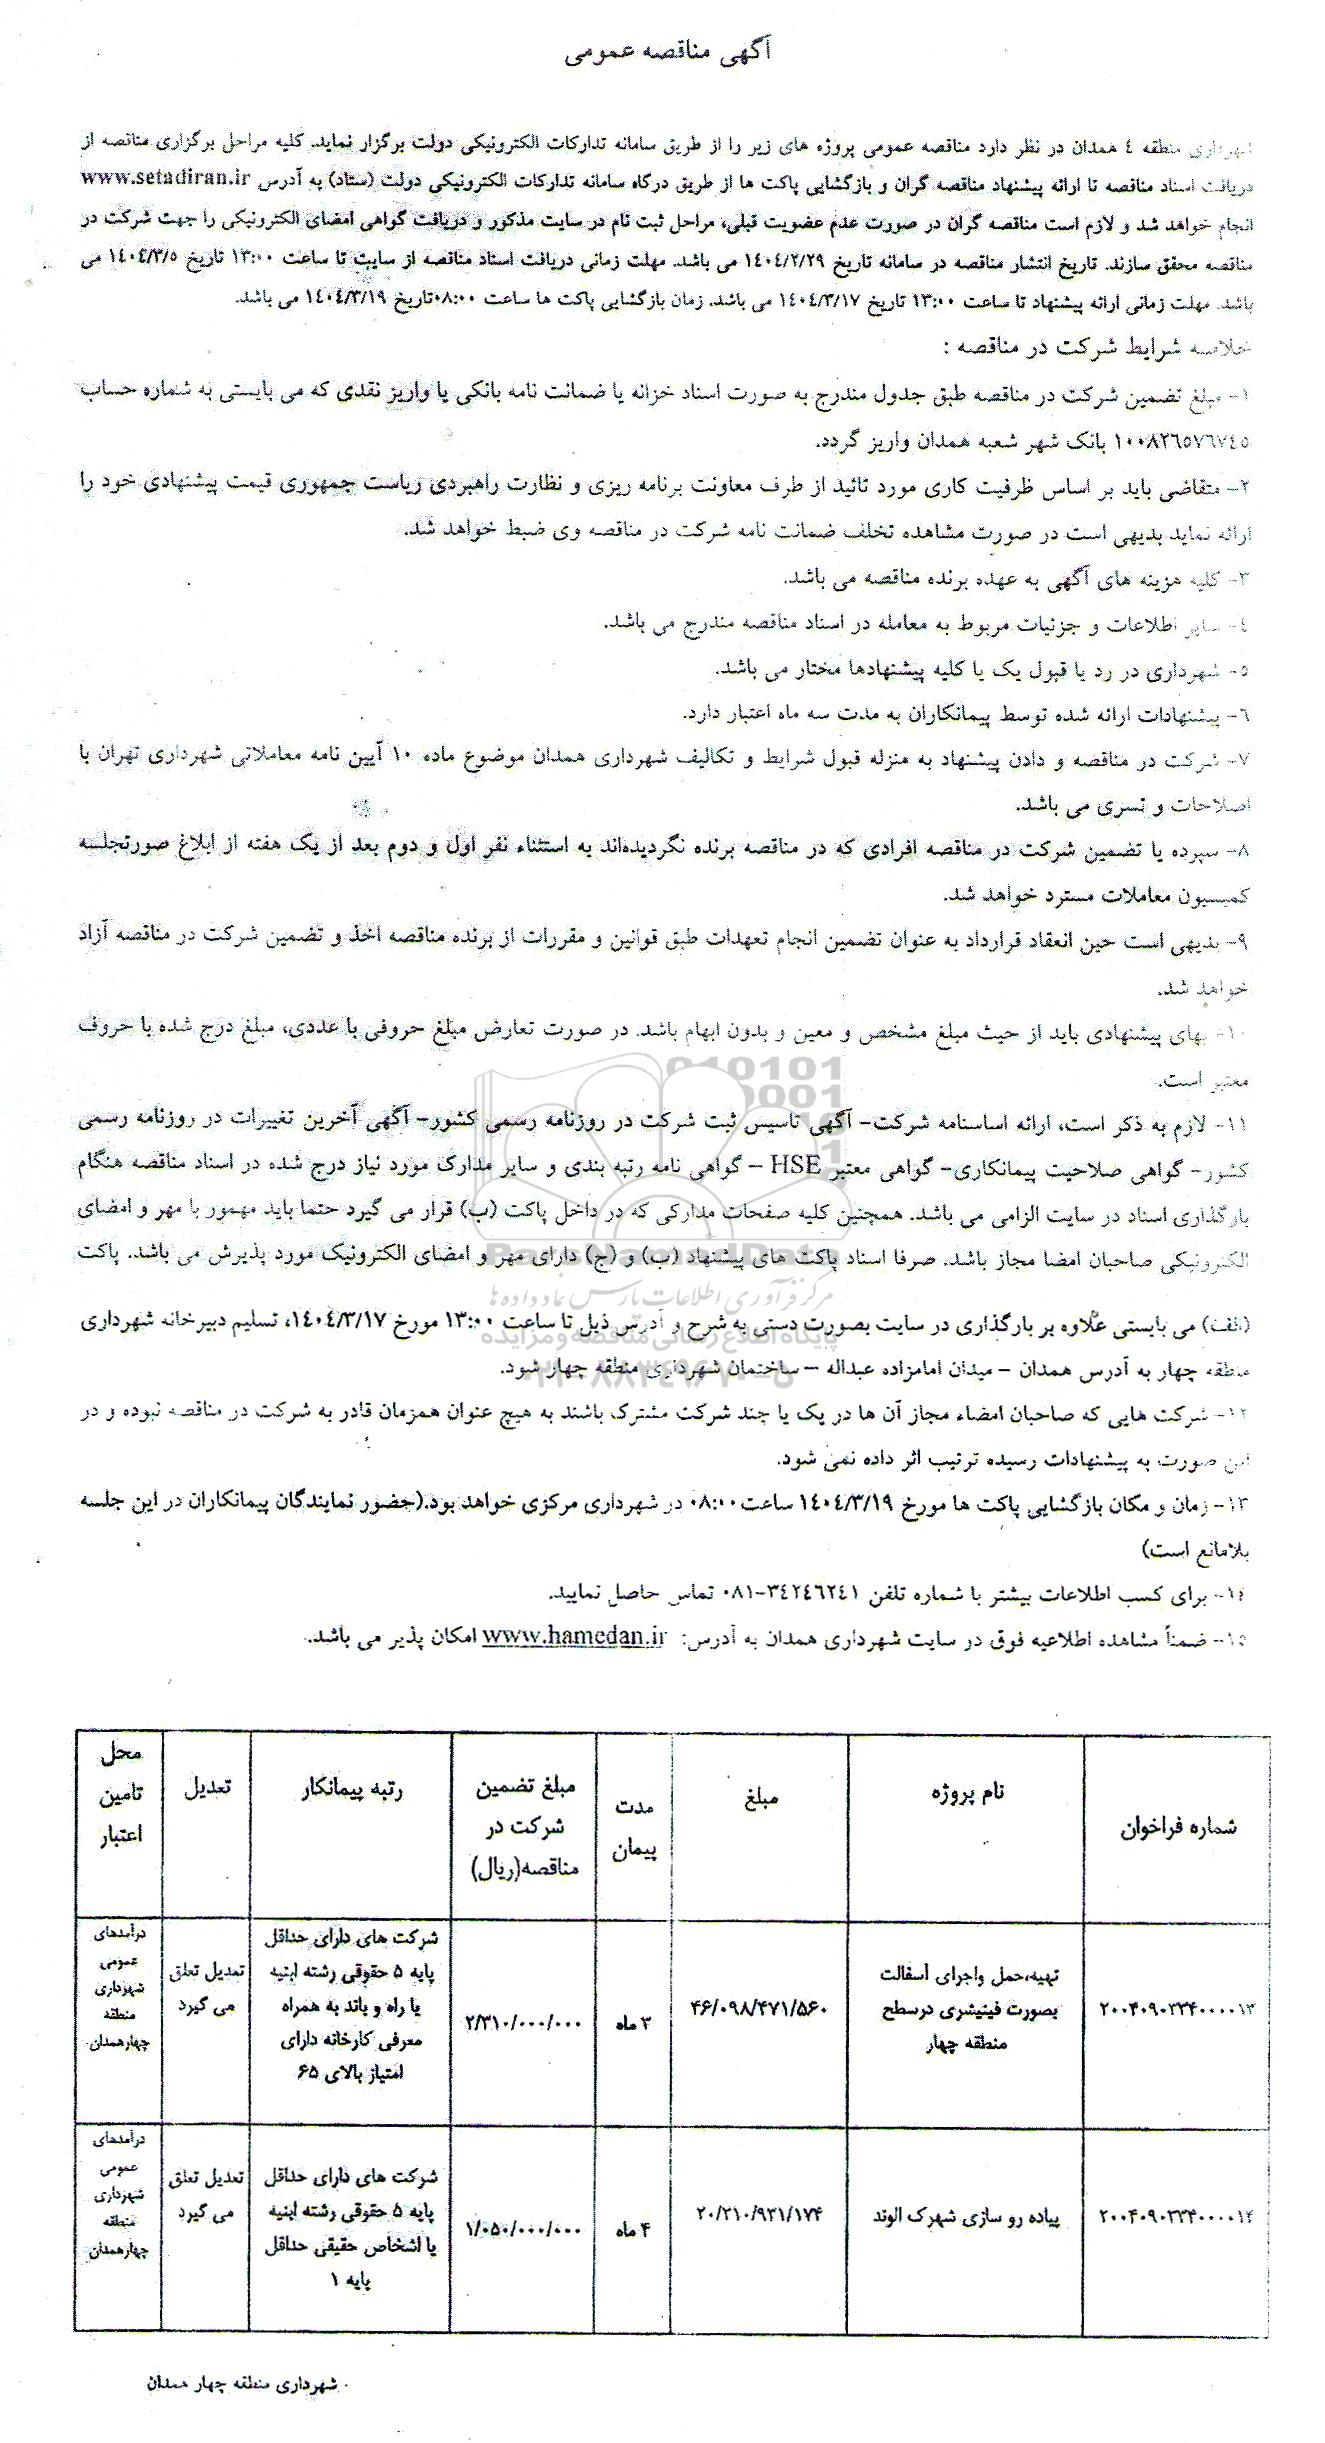 آگهی مناقصه عمومی
شهرداری منطقه ٤ همدان در نظر دارد مناقصه عمومی پروژه های زیر را از طریق سامانه تدارکات الکترونیکی دولت برگزار نماید. کلیه مراحل برگزاری مناقصه از
دریافت اسناد مناقصه تا ارائه پیشنهاد مناقصه گران و بازگشایی پاکت ها از طریق درگاه سامانه تدارکات الکترونیکی دولت (ستاد) به آدرس www.setadiran.ir
انجام خواهد شد و لازم است مناقصه گران در صورت عدم عضویت قبلی، مراحل ثبت نام در سایت مذکور و دریافت گواهی امضای الکترونیکی را جهت شرکت در
مناقصه محقق سازند. تاریخ انتشار مناقصه در سامانه تاریخ ١٤٠٤/٢/٢٩ می باشد. مهلت زمانی دریافت اسناد مناقصه از سایت تا ساعت ١٣:٠٠ تاریخ ١٤٠٤/٣/٥ می
باشد. مهلت زمانی ارائه پیشنهاد تا ساعت ١٣:٠٠ تاریخ ١٤٠٤/٣/١٧ می باشد. زمان بازگشایی پاکت ها ساعت ٠٨:٠٠تاریخ ١٤٠٤/٣/١٩ می باشد.
خلاصه شرایط شرکت در مناقصه :
١- مبلغ تضمین شرکت در مناقصه طبق جدول مندرج به صورت اسناد خزانه یا ضمانت نامه بانکی یا واریز نقدی که می بایستی به شماره حساب
١٠٠٨٢٦٥٧٦٧٤٥ بانک شهر شعبه همدان واریز گردد.
٢- متقاضی باید بر اساس ظرفیت کاری مورد تائید از طرف معاونت برنامه ریزی و نظارت راهبردی ریاست جمهوری قیمت پیشنهادی خود را
ارائه نماید بدیهی است در صورت مشاهده تخلف ضمانت نامه شرکت در مناقصه وی ضبط خواهد شد.
٣- کلیه هزینه های آگهی به عهده برنده مناقصه می باشد.
٤- سایر اطلاعات و جزئیات مربوط به معامله در اسناد مناقصه مندرج می باشد.
٥- شهرداری در رد یا قبول یک یا کلیه پیشنهادها مختار می باشد.
٦- پیشنهادات ارائه شده توسط پیمانکاران به مدت سه ماه اعتبار دارد.
٧- شرکت در مناقصه و دادن پیشنهاد به منزله قبول شرایط و تکالیف شهرداری همدان موضوع ماده ١٠ آیین نامه معاملاتی شهرداری تهران با
اصلاحات و تسری می باشد.
٨- سپرده یا تضمین شرکت در مناقصه افرادی که در مناقصه برنده نگردیده‌اند به استثناء نفر اول و دوم بعد از یک هفته از ابلاغ صورتجلسه
کمیسیون معاملات مسترد خواهد شد.
٩- بدیهی است حین انعقاد قرارداد به عنوان تضمین انجام تعهدات طبق قوانین و مقررات از برنده مناقصه اخذ و تضمین شرکت در مناقصه آزاد
خواهد شد.
١٠- بهای پیشنهادی باید از حیث مبلغ مشخص و معین و بدون ابهام باشد. در صورت تعارض مبلغ حروفی با عددی، مبلغ درج شده با حروف
معتبر است.
١١- لازم به ذکر است، ارائه اساسنامه شرکت- آگهی تاسیس ثبت شرکت در روزنامه رسمی کشور- آگهی آخرین تغییرات در روزنامه رسمی
کشور- گواهی صلاحیت پیمانکاری- گواهی معتبر HSE – گواهی نامه رتبه بندی و سایر مدارک مورد نیاز درج شده در اسناد مناقصه هنگام
بارگذاری اسناد در سایت الزامی می باشد. همچنین کلیه صفحات مدارکی که در داخل پاکت (ب) قرار می گیرد حتما باید مهمور با مهر و امضای
الکترونیکی صاحبان امضا مجاز باشد. صرفا اسناد پاکت های پیشنهاد (ب) و (ج) دارای مهر و امضای الکترونیک مورد پذیرش می باشد. پاکت
(الف) می بایستی علاوه بر بارگذاری در سایت بصورت دستی به شرح و آدرس ذیل تا ساعت ١٣:٠٠ مورخ ١٤٠٤/٣/١٧، تسلیم دبیرخانه شهرداری
منطقه چهار به آدرس همدان – میدان امامزاده عبداله – ساختمان شهرداری منطقه چهار شود.
١٢- شرکت هایی که صاحبان امضاء مجاز آن ها در یک یا چند شرکت مشترک باشند به هیچ عنوان همزمان قادر به شرکت در مناقصه نبوده و در
این صورت به پیشنهادات رسیده ترتیب اثر داده نمی شود.
١٣- زمان و مکان بازگشایی پاکت ها مورخ ١٤٠٤/٣/١٩ ساعت ٠٨:٠٠ در شهرداری مرکزی خواهد بود.(حضور نمایندگان پیمانکاران در این جلسه
بلامانع است)
١٤- برای کسب اطلاعات بیشتر با شماره تلفن ٣٤٢٤٦٢٤١-٠٨١ تماس حاصل نمایید.
١٥- ضمناً مشاهده اطلاعیه فوق در سایت شهرداری همدان به آدرس: www.hamedan.ir امکان پذیر می باشد.
شماره فراخوان
نام پروژه
مبلغ
مدت
پیمان
مبلغ تضمین
شرکت در
مناقصه(ریال)
رتبه پیمانکار
تعدیل
محل
تامین
اعتبار
۲۰۰۴۰۹۰۲۳۴۰۰۰۰۱۳
تهیه،حمل واجرای آسفالت
بصورت فینیشری درسطح
منطقه چهار
۴۶/۰۹۸/۴۷۱/۵۶۰
۳ ماه
۲/۳۱۰/۰۰۰/۰۰۰
شرکت های دارای حداقل
پایه ۵ حقوقی رشته ابنیه
یا راه و باند به همراه
معرفی کارخانه دارای
امتیاز بالای ۶۵
تعدیل تعلق
می گیرد
درآمدهای
عمومی
شهرداری
منطقه
چهارهمدان
۲۰۰۴۰۹۰۲۳۴۰۰۰۰۱۴
پیاده رو سازی شهرک الوند
۲۰/۳۱۰/۹۳۱/۱۷۴
۴ ماه
۱/۰۵۰/۰۰۰/۰۰۰
شرکت های دارای حداقل
پایه ۵ حقوقی رشته ابنیه
یا اشخاص حقیقی حداقل
پایه ۱
تعدیل تعلق
می گیرد
درآمدهای
عمومی
شهرداری
منطقه
چهارهمدان
شهرداری منطقه چهار همدان